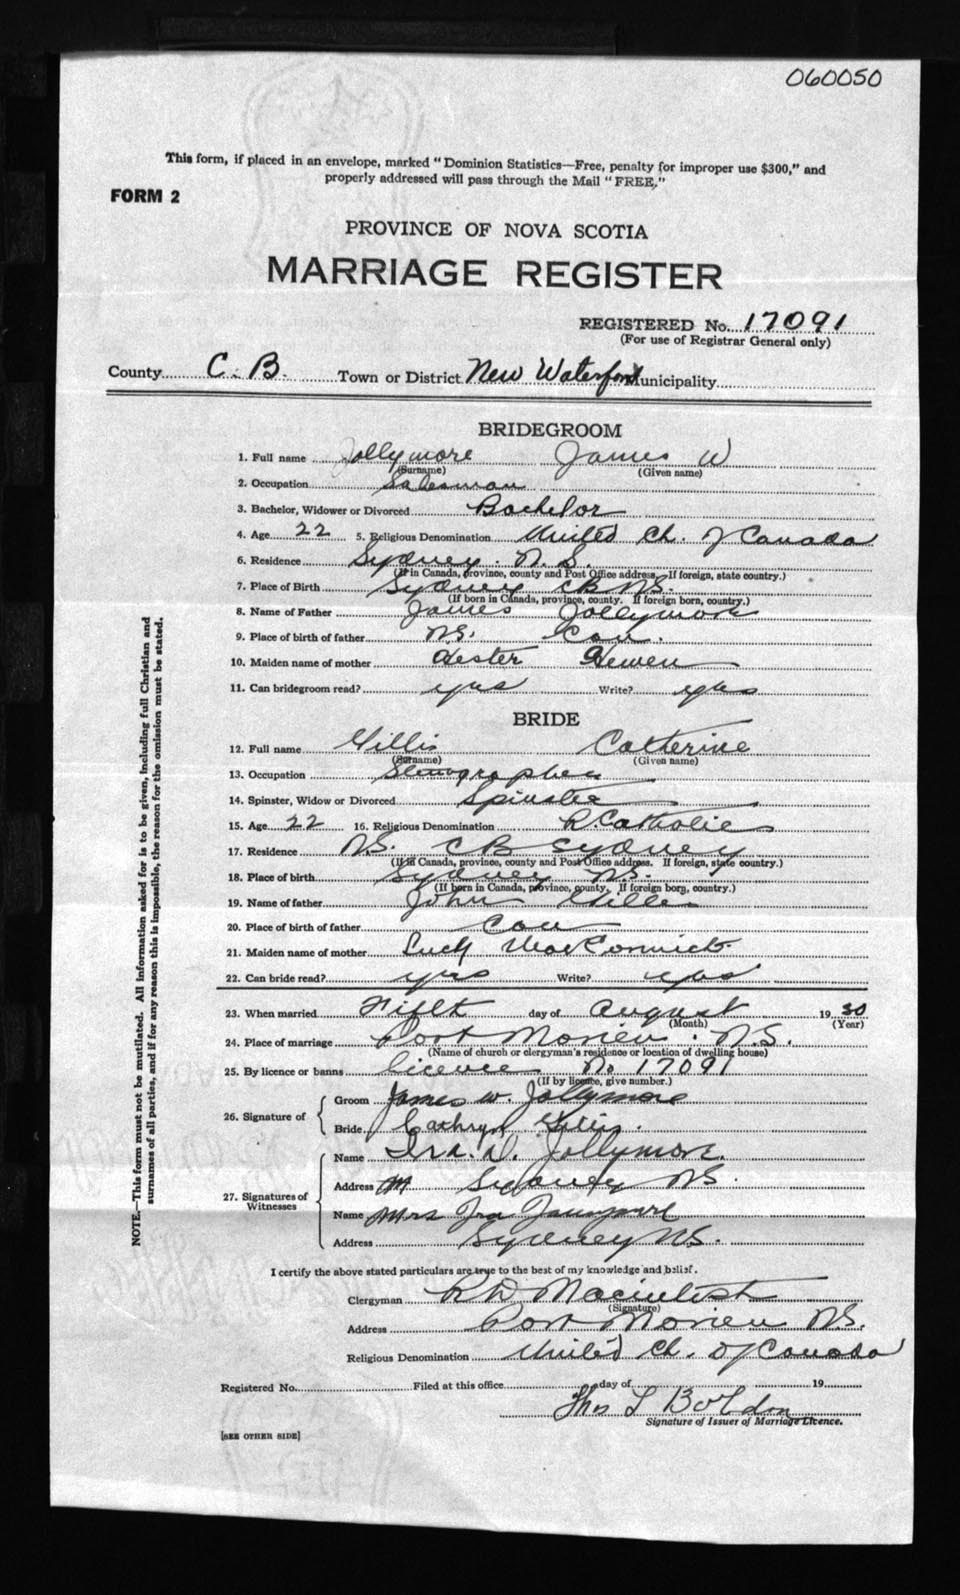 060050
This form, if placed in an envelope, marked "Dominion Statistics—Free, penalty for improper use $300," and
properly addressed will pass through the Mail "FREE."
FORM 2
PROVINCE OF NOVA SCOTIA
MARRIAGE REGISTER
REGISTERED No. 17091
(For use of Registrar General only)
County C. B. Town or District New Waterford Municipality
BRIDEGROOM
1. Full name Jollymore James W
(Surname) (Given name)
2. Occupation Salesman
3. Bachelor, Widower or Divorced Bachelor
4. Age 22 5. Religious Denomination United Ch. of Canada
6. Residence Sydney. N. S.
(If in Canada, province, county and Post Office address. If foreign, state country.)
7. Place of Birth Sydney CB NS.
(If born in Canada, province, county. If foreign born, country.)
8. Name of Father James Jollymore
9. Place of birth of father NS. Can.
10. Maiden name of mother Hester
11. Can bridegroom read? yes Write? yes
BRIDE
12. Full name Gillis Catherine
(Surname) (Given name)
13. Occupation Stenographer
14. Spinster, Widow or Divorced Spinster
15. Age 22 16. Religious Denomination R. Catholic
17. Residence N.S. CB Sydney
(If in Canada, province, county and Post Office address. If foreign, state country.)
18. Place of birth Sydney NS.
(If born in Canada, province, county. If foreign born, country.)
19. Name of father John Gillis
20. Place of birth of father Can
21. Maiden name of mother MacCormick
22. Can bride read? yes Write? yes
23. When married Fifth day of August 19 30
(Month) (Year)
24. Place of marriage Port Morien. N.S.
(Name of church or clergyman's residence or location of dwelling house)
25. By licence or banns licence No 17091
(If by licence, give number.)
26. Signature of
Groom James W. Jollymore
Bride Cathryn Gillis.
27. Signatures of Witnesses
Name Ira. D. Jollymore.
Address Sydney NS.
Name Mrs Ira Jollymore
Address Sydney NS.
I certify the above stated particulars are true to the best of my knowledge and belief.
Clergyman R D Macintosh
(Signature)
Address Port Morien NS.
Religious Denomination United Ch. of Canada
Registered No. Filed at this office day of 19
Thos L Boldon
Signature of Issuer of Marriage Licence.
[SEE OTHER SIDE]
NOTE.—This form must not be mutilated. All information asked for is to be given, including full Christian and
surnames of all parties, and if for any reason this is impossible, the reason for the omission must be stated.